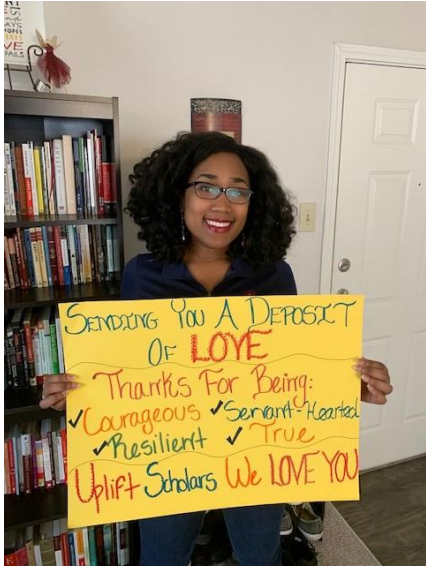 SENDING YOU A DEPOSIT
OF LOVE
Thanks For Being:
✓Courageous ✓Servant-Hearted
✓Resilient ✓True
Uplift Scholars We LOVE YOU